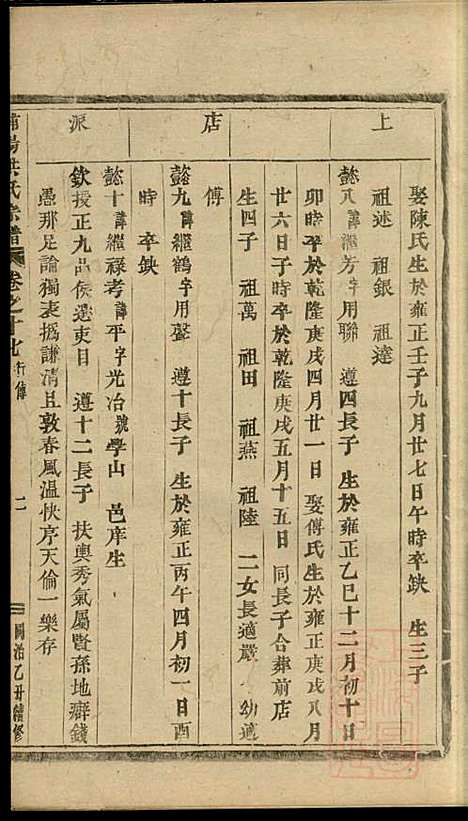 上 店 派
娶陳氏生於雍正壬子九月廿七日午時卒缺 生三子
祖述 祖銀 祖達
懿八諱繼芳字用聯 遵四長子 生於雍正乙巳十二月初十日
卯時卒於乾隆庚戌四月廿一日 娶傅氏生於雍正庚戌八月
廿六日子時卒於乾隆庚戌五月十五日 同長子合葬前店
生四子 祖萬 祖田 祖燕 祖陸 二女長適嚴 幼適
傅
懿九諱繼鶴字用聲 遵十長子 生於雍正丙午四月初一日酉
時 卒缺
懿十諱繼祿考諱平字光冶號學山 邑庠生
欽授正九品侯選吏目 遵十二長子 扶輿秀氣屬賢孫地癖錢
愚那足論獨表撝謙清且敦春風溫怏序天倫一樂存
浦陽洪氏宗譜 卷之十七 行傳 二 同治乙丑續修